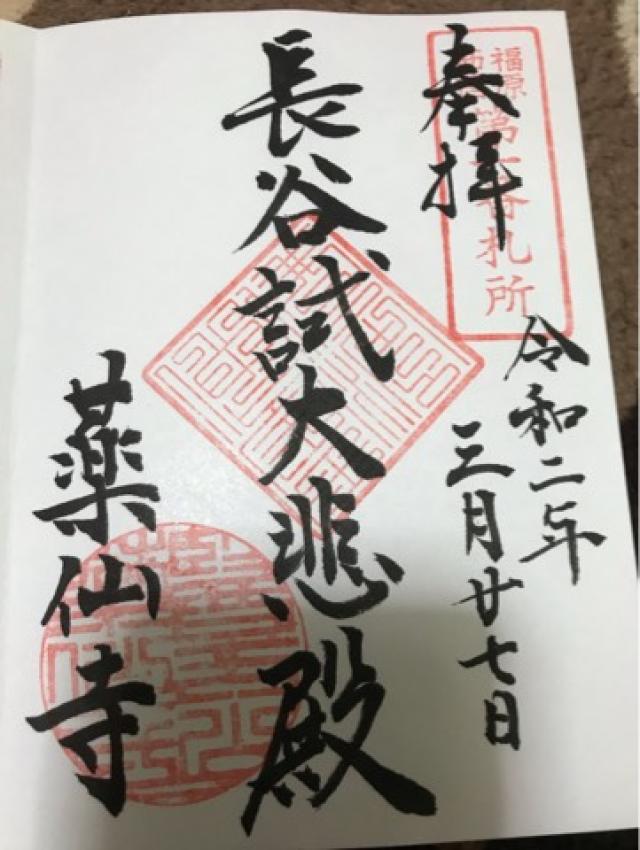 福原
番札所
奉拝
令和二年
三月廿七日
長谷試大悲殿
薬仙寺